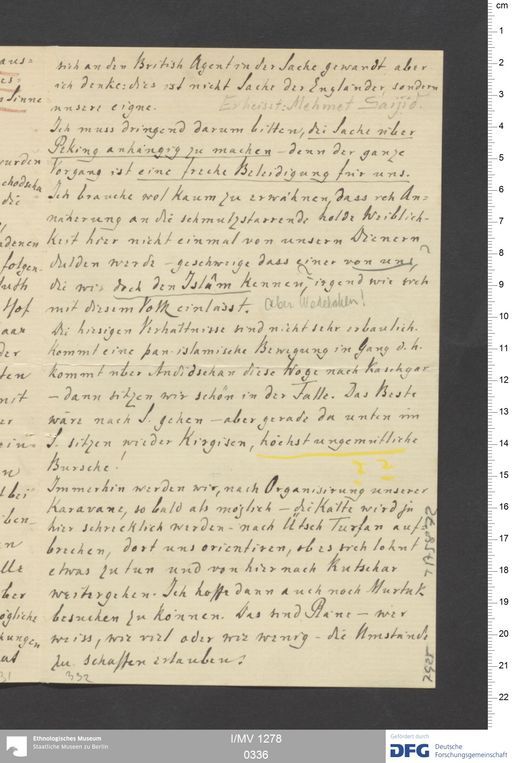 sich an den British Agent in der Sache gewandt aber
ich denke: dies ist nicht Sache der Engländer, sondern
unsere eigne.
Erheiset: Mehmet Saijid.
Ich muss dringend darum bitten, die Sache über
Peking anhängig zu machen – denn der ganze
Vorgang ist eine freche Beleidigung für uns.
Ich brauche wol kaum zu erwähnen, dass ich An=
näherung an die schmutzstarrende holde Weiblich-
keit hier nicht einmal von unsern Dienern
dulden werde – geschweige dass einer von uns,?
die wir doch den Islâm kennen,? irgend wie sich
mit diesem Volk einlässt. aber
Die hiesigen Verhältnisse sind nicht sehr erbaulich.
Kommt eine pan-islamische Bewegung in Gang d.h.
kommt über Andidschan diese Woge nach Kaschgar
– dann sitzen wir schön in der Falle. Das Beste
wäre nach S. gehen – aber gerade da unten im
S. sitzen wieder Kirgisen, höchst ungemütliche
Bursche!
? ?
Immerhin werden wir, nach Organisirung unserer
Karavane, so bald als möglich – die Kälte wird ja
hier schrecklich werden – nach Ütsch Turfan auf=
brechen, dort uns orientiren, ob es sich lohnt
etwas zu tun und von hier nach Kutschar
weitergehen. Ich hoffe dann auch noch Murtuk
besuchen zu können. Das sind Pläne – wer
weiss, wie viel oder wie wenig – die Umstände
zu schaffen erlauben!
332
cm
1
2
3
4
5
6
7
8
9
10
11
12
13
14
15
16
17
18
19
20
21
22
Ethnologisches Museum
Staatliche Museen zu Berlin
I/MV 1278
0336
Gefördert durch
DFG Deutsche
Forschungsgemeinschaft